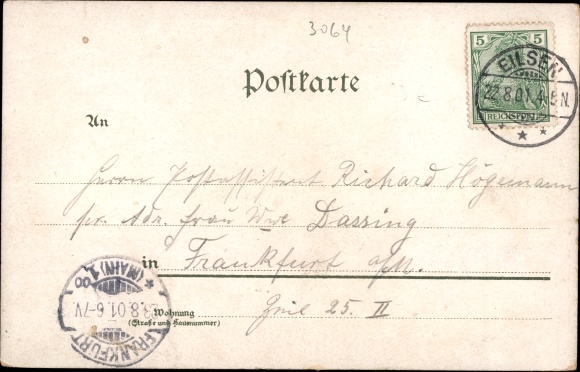 3064
5 5
REICHSPOST
EILSEN
22.8.01.4-5N.
Postkarte
An
Herrn Postassistent Richard Högemann
pr. Adr. Frau Wwe Dassing
in Frankfurt a/M.
Zeil 25. II
Wohnung
(Straße und Hausnummer)
FRANKFURT
(MAIN) 1.
23.8.01.6-7V.